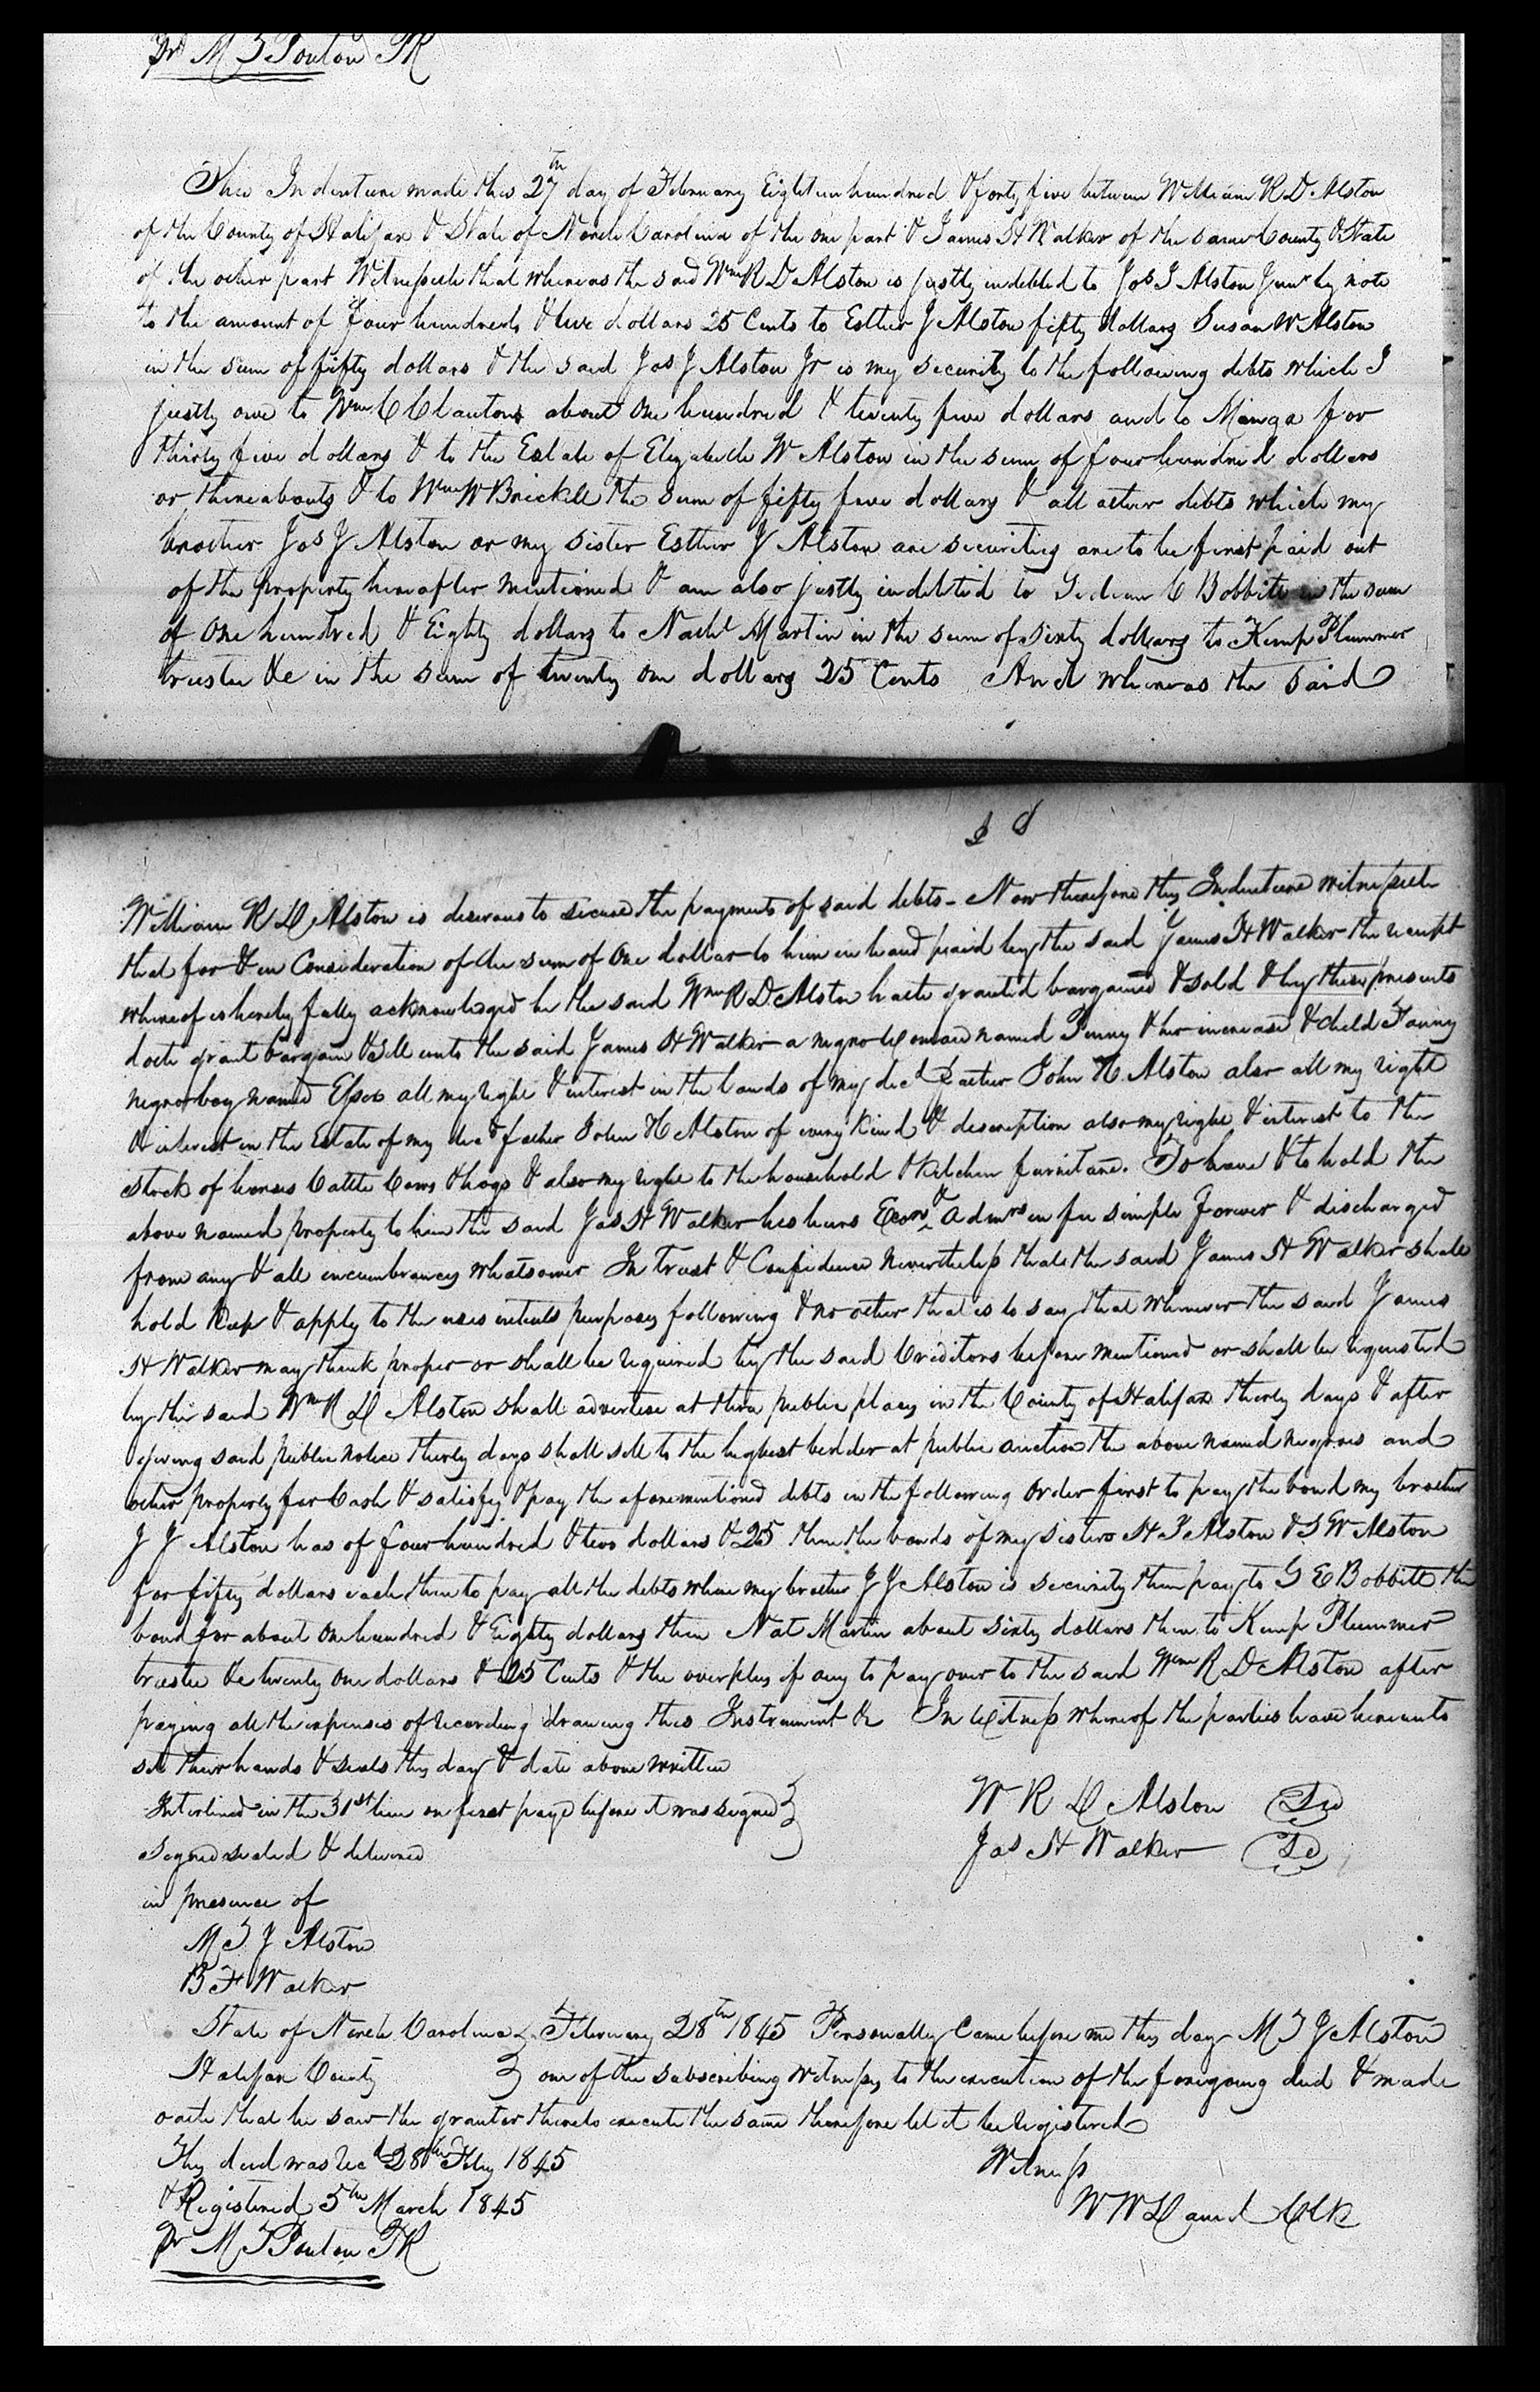 Pr M T Ponton PR
This Indenture made this 27th day of February Eighteen hundred & forty five between William R. D. Alston
of the County of Halifax & State of North Carolina of the one part & James H Walker of the same County & State
of the other part Witnesseth that whereas the said Wm R D Alston is justly indebted to Jos J Alston Junr by note
to the amount of four hundred & two dollars 25 Cents to Esther J Alston fifty dollars Susan W Alston
in the sum of fifty dollars & the said Jas J Alston Jr is my security to the following debts which I
justly owe to Wm C Clanton about one hundred & twenty five dollars and to for
thirty five dollars & to the Estate of Elizabeth W Alston in the sum of four hundred dollars
or thereabouts & to Wm W Brickell the sum of fifty five dollars & all other debts which my
brother Jos J Alston or my sister Esther J Alston are securities are to be first paid out
of the property hereafter mentioned & am also justly indebted to Gideon C Bobbitt in the sum
of One hundred & Eighty dollars to Nathl Martin in the sum of sixty dollars to Kemp Plummer
trustee &c in the sum of twenty one dollars 25 Cents And whereas the said
William R D Alston is desirous to secure the payments of said debts - Now therefore this Indenture witnesseth
that for & in Consideration of the sum of One dollar to him in hand paid by the said James H Walker the receipt
whereof is hereby fully acknowledged he the said Wm R D Alston hath granted bargained & sold & by these presents
doth grant bargain & sell unto the said James H Walker a negro woman named Pinny & her increase & child Fanny
negro boy named all my right & interest in the lands of my decd father John H Alston also all my right
& interest in the Estate of my decd father John H Alston of every kind & description also my right & interest to the
stock of horses Cattle Cows & hogs & also my right to the household & kitchen furniture. To have & to hold the
above named property to him the said Jas H Walker his heirs Exors & Admrs in fee simple forever & discharged
from any & all incumbrances whatsoever In trust & Confidence nevertheless that the said James H Walker shall
hold keep & apply to the uses intents purposes following & no other that is to say that whenever the said James
H Walker may think proper or shall be required by the said Creditors before mentioned or shall be requested
by the said Wm R D Alston shall advertise at three public places in the County of Halifax thirty days & after
giving said public notice thirty days shall sell to the highest bidder at public auction the above named negroes and
other property for Cash & satisfy & pay the aforementioned debts in the following order first to pay the bond my brother
J J Alston has of four hundred & two dollars & 25 then the bonds of my sisters H J Alston & S W Alston
for fifty dollars each then to pay all the debts where my brother J J Alston is security then pay to G C Bobbitt the
bond for about One hundred & Eighty dollars then Nat Martin about sixty dollars then to Kemp Plummer
trustee &c twenty one dollars & 25 Cents & the overplus if any to pay over to the said Wm R D Alston after
paying all the expenses of recording drawing this Instrument &c In Witness whereof the parties have hereunto
set their hands & seals this day & date above written
Interlined in the 31st line on first page before it was signed
W R D Alston Sd
signed sealed & delivered
Jas H Walker Sd
in presence of
M T J Alston
B F Walker
State of North Carolina February 28th 1845 Personally Came before me this day M T J Alston
Halifax County one of the subscribing witnesses to the execution of the foregoing deed & made
oath that he saw the grantor thereto execute the same therefore let it be registered
This deed was recd 28th Feby 1845
Witness
& Registered 5th March 1845
W W Daniel Clk
Pr M T Ponton PR